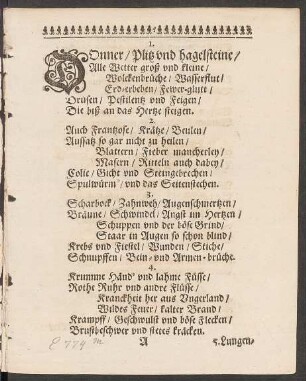 1.
DOnner / Plitz vnd hagelsteine /
Alle Wetter groß vnd kleine /
Wolckenbrüche / Wasserflut /
Erd-erbeben / Fewer-glutt /
Drüsen / Pestilentz vnd Feigen /
Die biß an das Hertze steigen.
2.
Auch Frantzose / Krätze / Beulen /
Aussatz so gar nicht zu heilen /
Blattern / Fieber mancherley /
Masern / Ritteln auch dabey /
Colic / Gicht vnd Seitngebrechen /
Spulwürm / vnd das Seitenstechen.
3.
Scharbock / Zahnweh / Augenschmertzen /
Bräune / Schwindel / Angst im Hertzen /
Schuppen vnd der böse Grind /
Staar in Augen so schon blind /
Krebs vnd Fiestel / Wunden / Stiche /
Schnupffen / Bein- vnd Armen-brüche.
4.
Krumme Händ' vnd lahme Füsse /
Rothe Ruhr vnd andre Flüsse /
Kranckheit her aus Vngerland /
Wildes Feuer / kalter Brand /
Krampff / Geschwulst vnd böse Flecken /
Brustbeschwer vnd stetes kräcken.
A 5. Lungen-